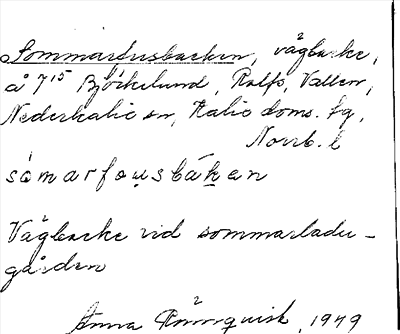 Sommarfusbacken, vägbacke,
å 7¹⁵ Björkelund, Rolfs, Vallen,
Nederkalix sn, Kalix doms. tg,
Norrb. l
sómarfo̤u̩sbák̠en
Vägbacke vid sommarladu-
gården
Anna Rönnquist, 1949